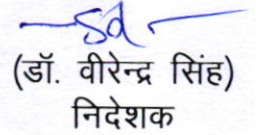 Sd
(डॉ. वीरेन्द्र सिंह)
निदेशक